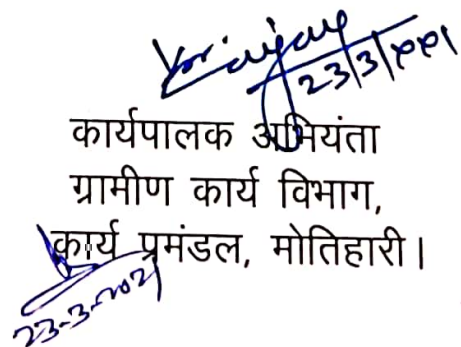 23/3/2021
कार्यपालक अभियंता
ग्रामीण कार्य विभाग,
कार्य प्रमंडल, मोतिहारी।
23-3-2021